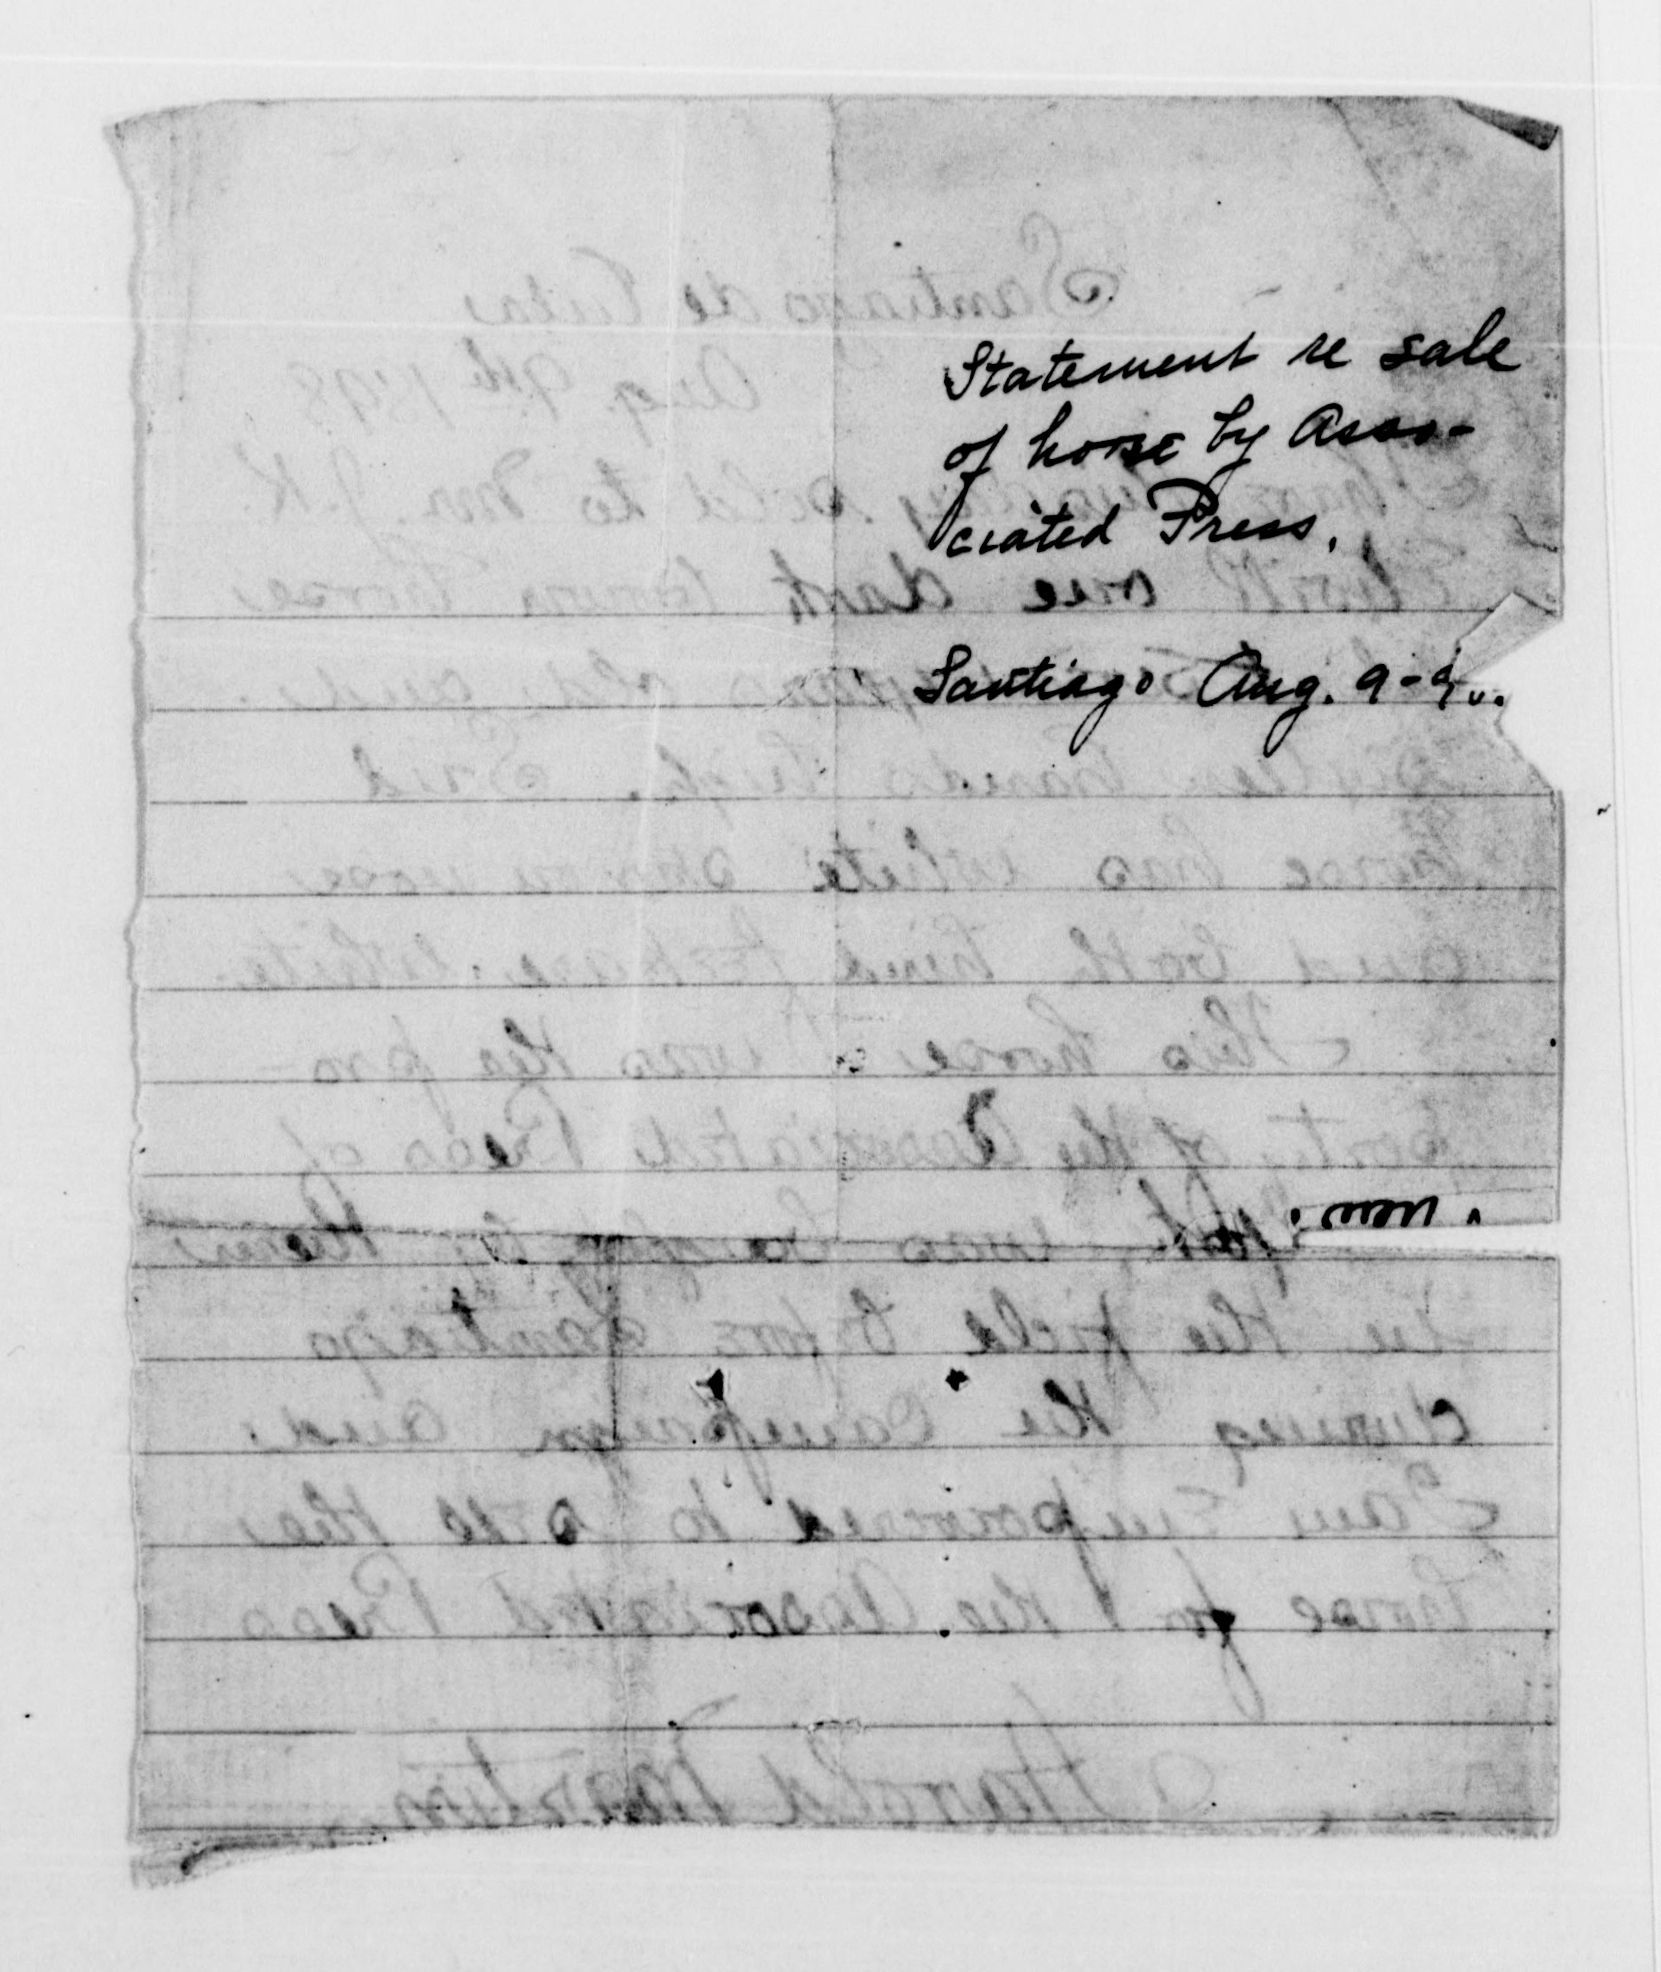 Statement re sale
of horse by Asso-
ciated Press.
Santiago Aug. 9-9
Santiago de Cuba
Aug. 9th 1898
sold to Mr. J. K.
one dark brown horse
years old, and
sixteen hands high. Said
horse has white on nose
and both hind feet are white
This horse was the pro-
perty of the Associated Press
was bought by them
in the field before Santiago
during the campaign and
I am empowered to sell the
horse for the Associated Press
Harold Martin